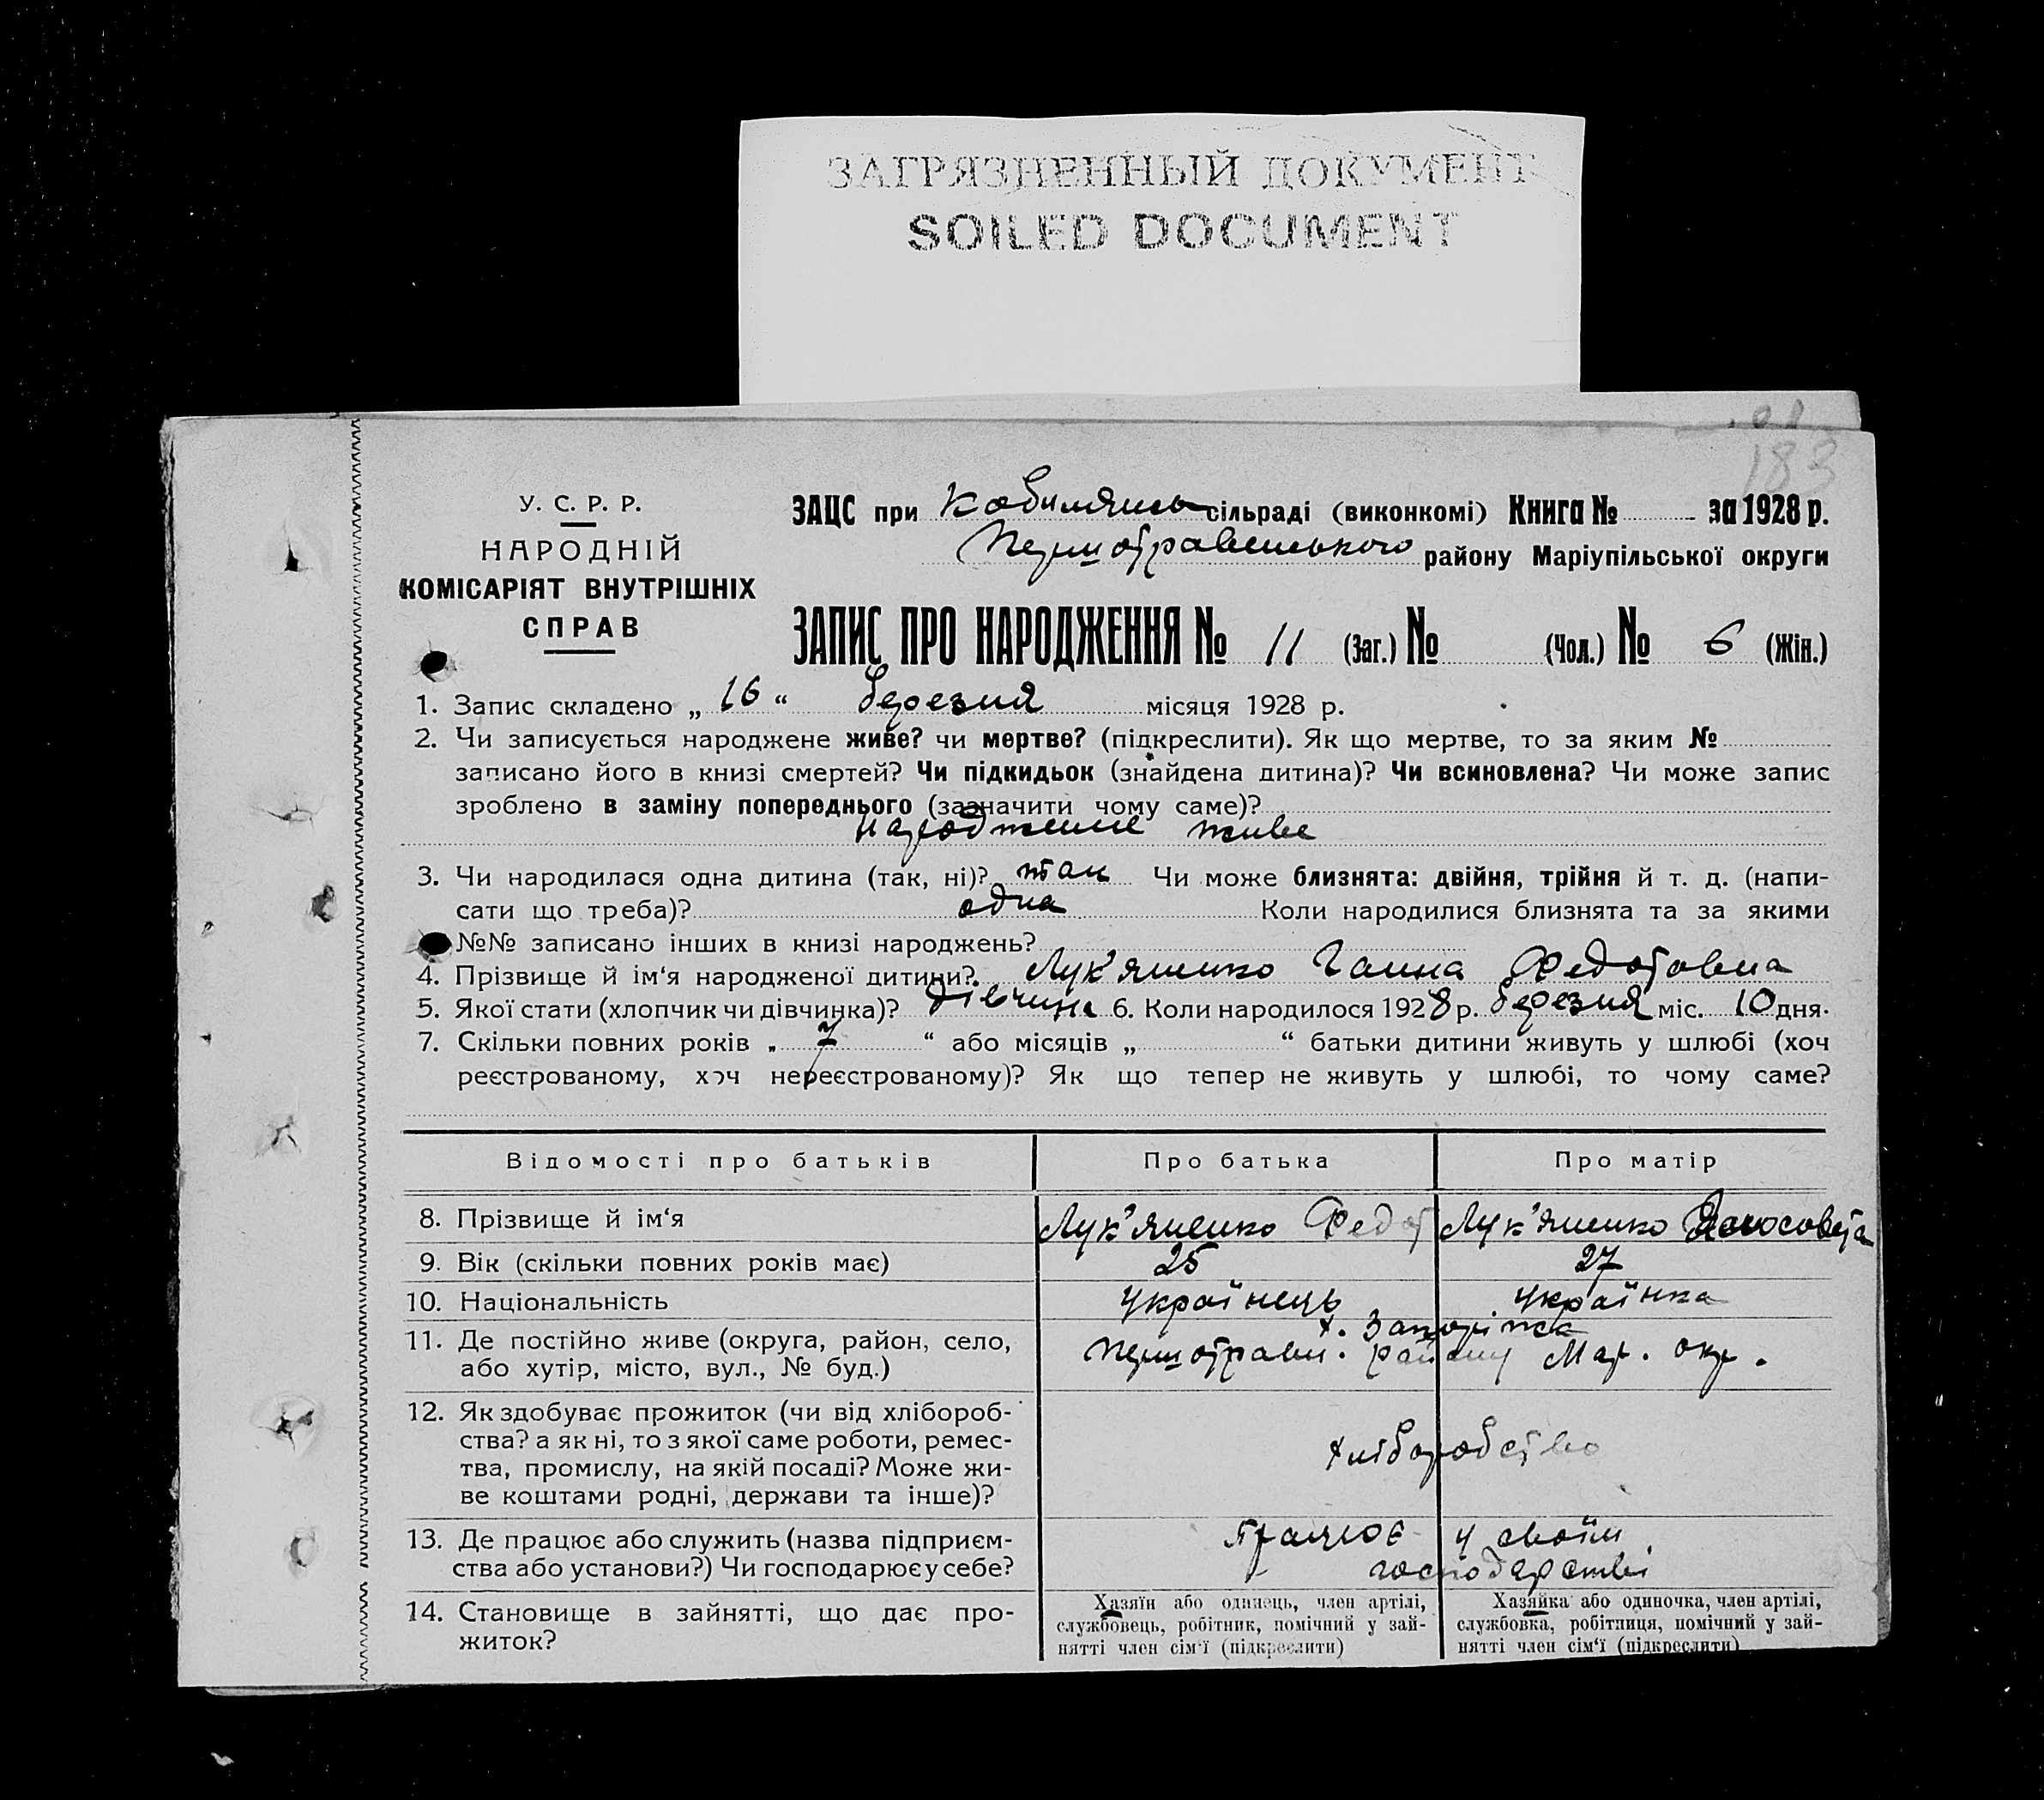 ЗАГРЯЗНЕННЫЙ ДОКУМЕНТ
SOILED DOCUMENT
183
У. С. Р. Р.
НАРОДНІЙ
КОМІСАРІЯТ ВНУТРІШНІХ
СПРАВ
ЗАЦС при сільраді (виконкомі) Книга № за 1928 р.
району Маріупільської округи
ЗАПИС ПРО НАРОДЖЕННЯ № 11 (Заг.) № (Чол.) № 6 (Жін.)
1. Запис складено „ 16 “ березня місяця 1928 р.
2. Чи записується народжене живе? чи мертве? (підкреслити). Як що мертве, то за яким №
записано його в книзі смертей? Чи підкидьок (знайдена дитина)? Чи всиновлена? Чи може запис
зроблено в заміну попереднього (зазначити чому саме)?
народжене живе
3. Чи народилася одна дитина (так, ні)? так Чи може близнята: двійня, трійня й т. д. (напи-
сати що треба)? одна Коли народилися близнята та за якими
№№ записано інших в книзі народжень?
4. Прізвище й ім‘я народженої дитини? Лук’яненко Ганна Федотовна
5. Якої стати (хлопчик чи дівчинка)? дівчина 6. Коли народилося 1928 р. березня міс. 10 дня.
7. Скільки повних років „ 7 “ або місяців „ “ батьки дитини живуть у шлюбі (хоч
реєстрованому, хоч нереєстрованому)? Як що тепер не живуть у шлюбі, то чому саме?
Відомості про батьків Про батька Про матір
8. Прізвище й ім‘я Лук’яненко Федот Лук’яненко
9. Вік (скільки повних років має) 25 27
10. Національність Українець Українка
11. Де постійно живе (округа, район, село,
або хутір, місто, вул., № буд.)
х.
району Мар. окр.
12. Як здобуває прожиток (чи від хлібороб-
ства? а як ні, то з якої саме роботи, ремес-
тва, промислу, на якій посаді? Може жи-
ве коштами родні, держави та інше)?
хліборобство
13. Де працює або служить (назва підприєм-
ства або установи?) Чи господарює у себе?
працює у своїм
господарстві
14. Становище в зайнятті, що дає про-
житок?
Хазяїн або одинець, член артілі,
службовець, робітник, помічний у зай-
нятті член сім‘ї (підкреслити)
Хазяйка або одиночка, член артілі,
службовка, робітниця, помічний у зай-
нятті член сім‘ї (підкреслити)